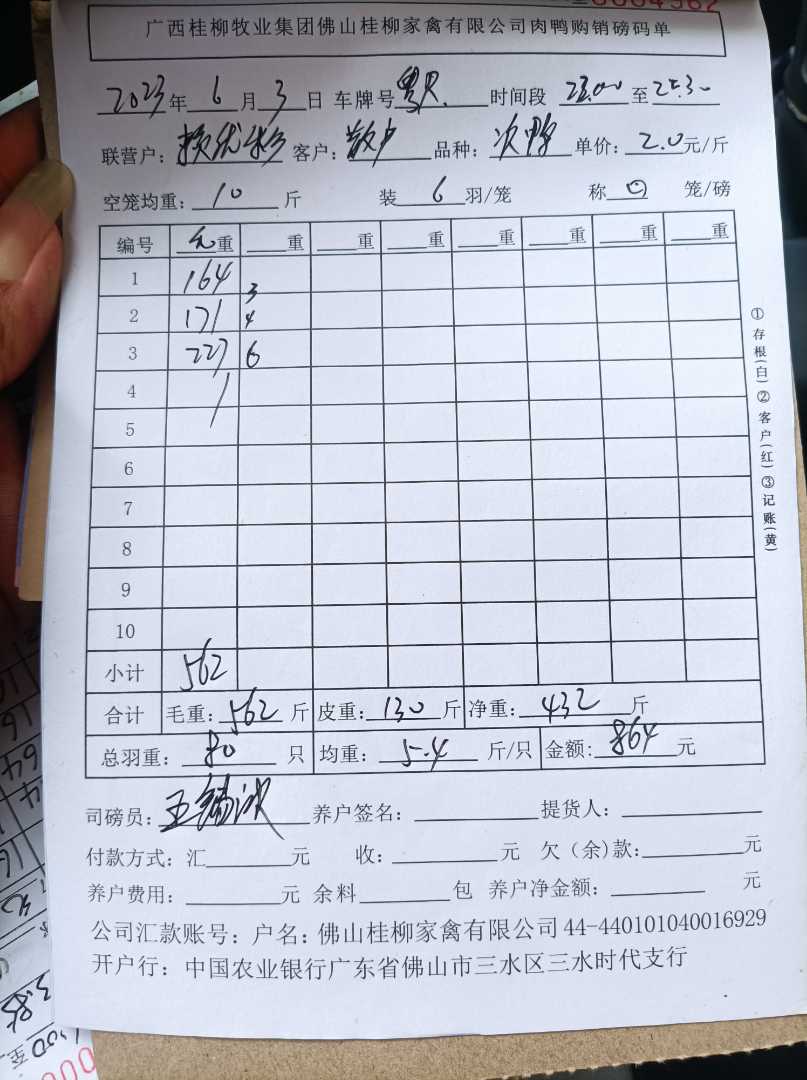 广西桂柳牧业集团佛山桂柳家禽有限公司肉鸭购销磅码单
2023年 6 月 3 日 车牌号 粤 时间段 23:00 至
联营户: 客户: 散户 品种: 次鸭 单价: 2.0 元/斤
空笼均重: 10 斤 装 6 羽/笼 称 笼/磅
编号 毛重 重 重 重 重 重 重 重
1 164 3
2 171 4
3 227 6
4
5
6
7
8
9
10
小计 562
合计 毛重: 562 斤 皮重: 130 斤 净重: 432 斤
总羽重: 80 只 均重: 5.4 斤/只 金额: 864 元
司磅员: 王 养户签名: 提货人:
付款方式: 汇 元 收: 元 欠(余)款: 元
养户费用: 元 余料 包 养户净金额: 元
公司汇款账号: 户名: 佛山桂柳家禽有限公司 44-440101040016929
开户行: 中国农业银行广东省佛山市三水区三水时代支行
①存根(白)②客户(红)③记账(黄)